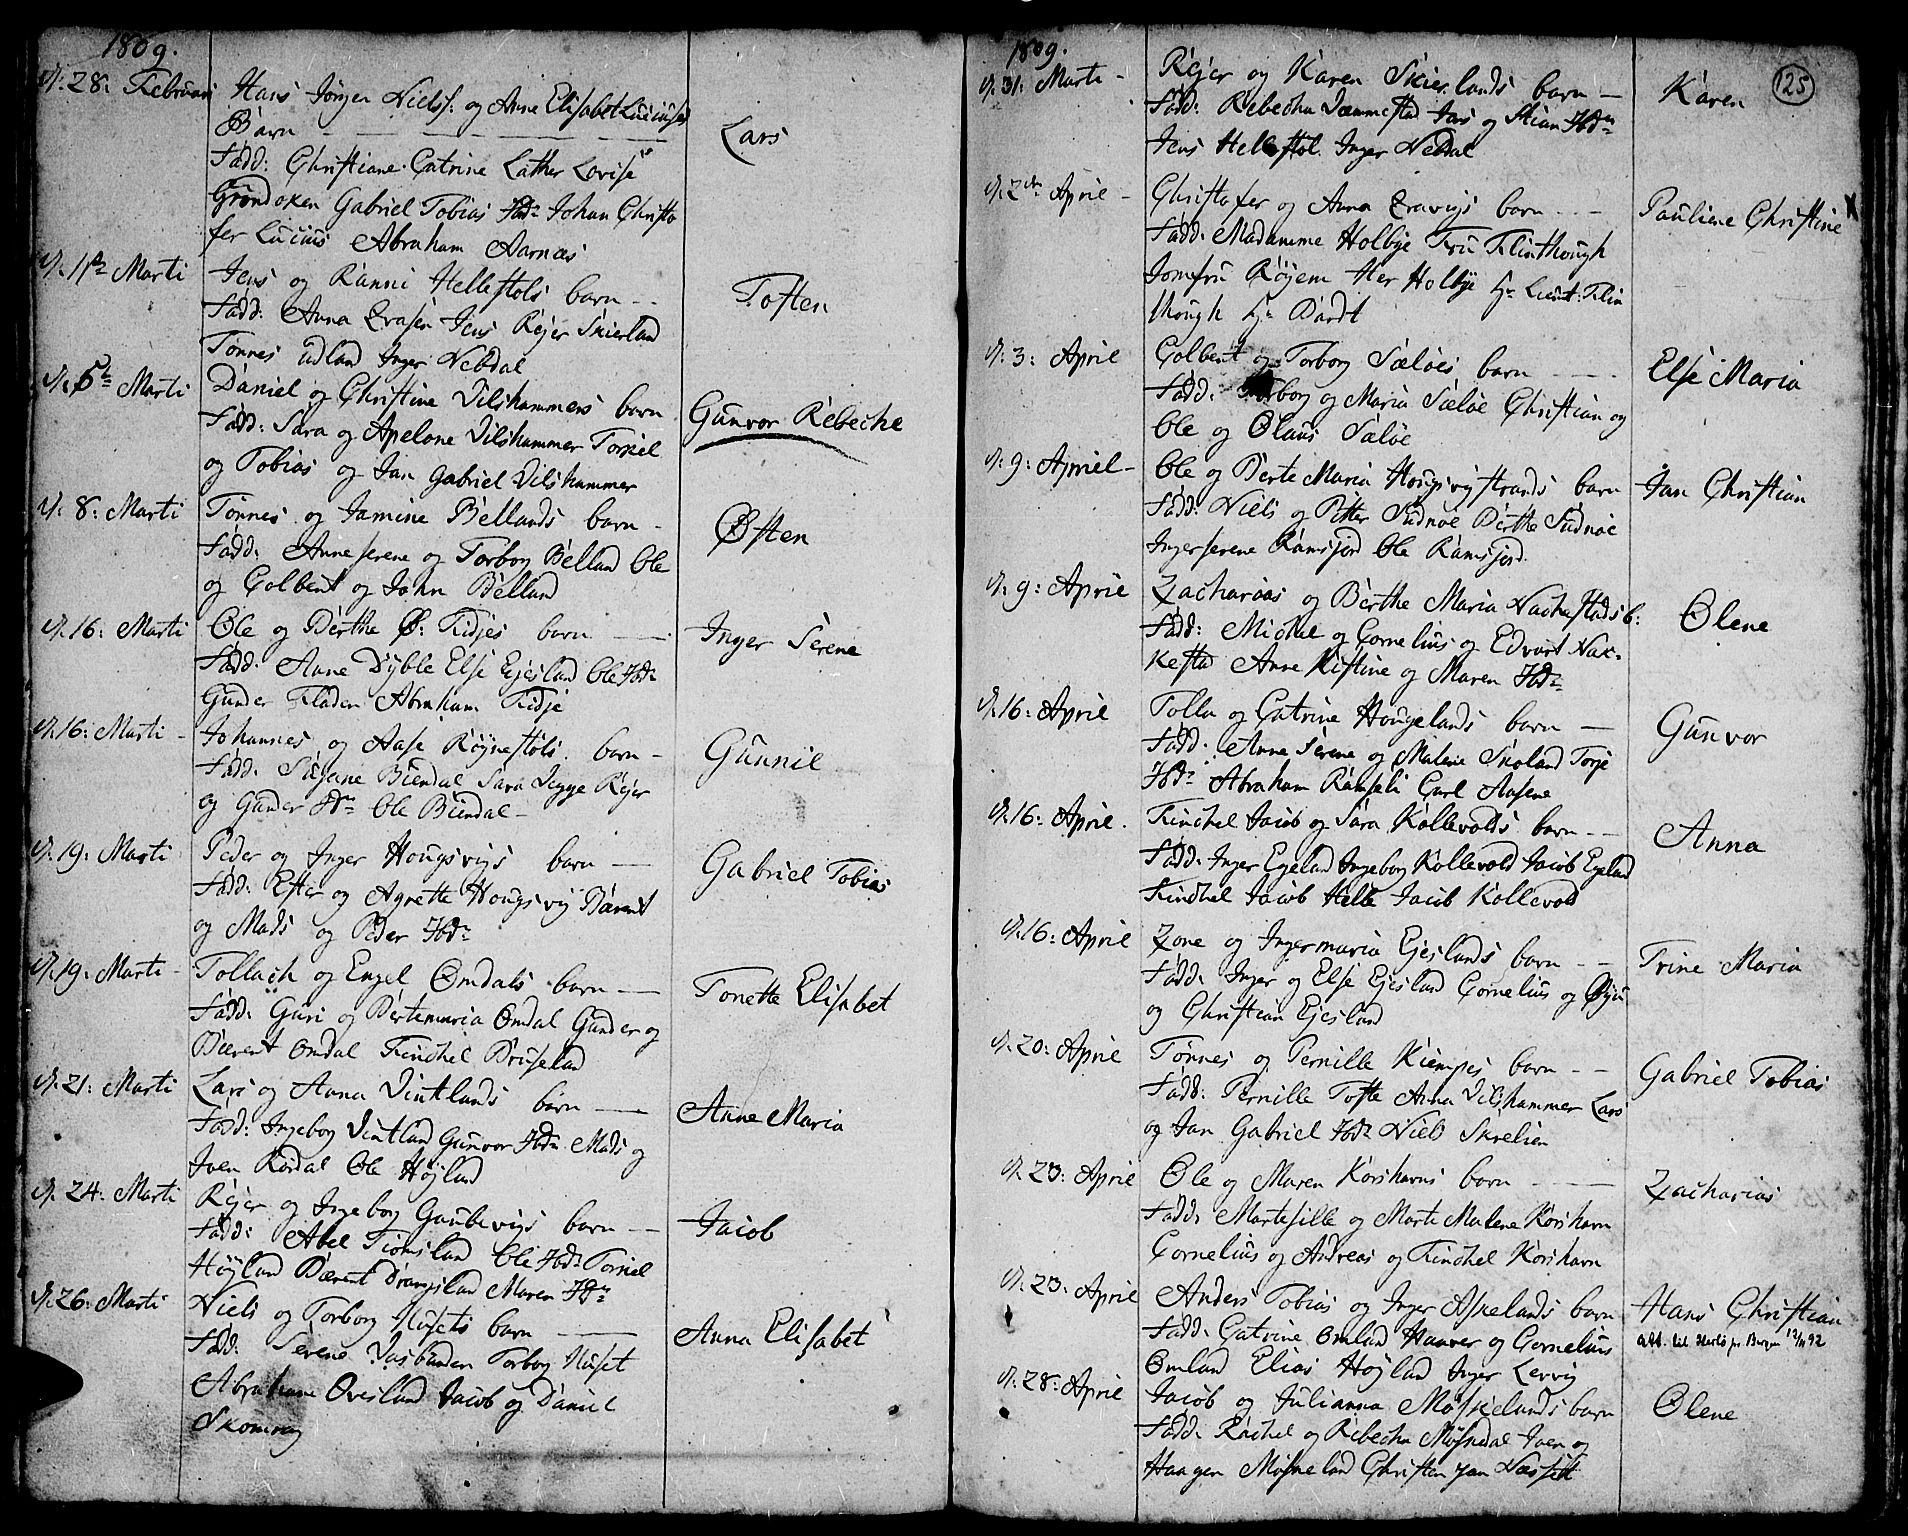 1809.
d. 28: Februari Hans Jørgen Nielss: og Anne Elisabet Luciuses
Barn — Lars
Fadd: Christiane Catrine Lather Lovise
Grøndoken Gabriel Tobias Ibdm Johan Christo
fer Lucius Abraham Aarnæs
d. 11te Marti Jens og Ranni Hellestols barn — Toften
Fadd: Anna Jens Rejer Skierland
Tønnes udland Inger Nebdal
d. 5te Marti Daniel og Christine Vilshammers barn Gunvor Rebeche
Fadd: Sara og Apelone Vilshammer Torkiel
og Tobias og Jan Gabriel Vilshammer
d. 8: Marti Tønnes og Jamine Bellands barn - Østen
Fadd: Anne serene og Torborg Belland Ole
og Colbent og John Belland
d. 16: Marti Ole og Berthe Ø: Fidjes barn — Inger Serene
Fadd: Anne Dyble Else Ejesland Ole Ibdm
Gunder Fladen Abraham Fidje
d. 16: Marti - Johannes og Aase Røynestols barn - Gunnil
Fadd: Susane Biendal Sara Rejer
og Gunder Ibdm Ole Biendal -
d. 19: Marti Peder og Inger Hougsvigs barn — Gabriel Tobias
Fadd: Ester og Agnette Hougsvig Bærent
og Mads og Peder Ibdm
d. 19: Marti - Tollach og Engel Omdals barn — Tonette Elisabet
Fadd: Guri og Bertemaria Omdal Gunder og
Bærent Omdal Findhel Briseland
d. 21: Marti Lars og Anna Vintlands barn — Anne Maria
Fadd: Ingebog Vintland Gunvor Ibdm Mads og
Iven Rørdal Ole Højland
d. 24: Marti Rejer og Ingebog Gaubevigs barn — Jacob
Fadd: Abel Fiomsland Ole Ibdm Torkiel
Højland Bærent Drangsland Maren Ibdm
d. 26: Marti Niels og Torborg Husets barn — Anna Elisabet
Fadd: Serene Torbog Huset
Abraham Ovesland Jacob og Daniel
Skomrag
1809.
125
d. 31: Marti - Rejer og Karen Skierlands barn — Karen
Fadd: Rebecha Vemmestad Jens og Stian Ibdm
Jens Hellestol Inger Nebdal
d. 2den April - Christofer og Anna barn — Pauline Christine
Fadd: Madamme Holbye Fru Flinthough
Jomfru Røyem Her Holbye Hr Lieut: Flin
though Hr Bardt
d. 3: April Colbent og Torborg Seløes barn — Else Maria
Fadd: Torborg og Maria Seløe Christian og
Ole og Olaus Seløe
d. 9: Apriel - Ole og Berte Maria Hougsvigstrands barn Jan Christian
Fadd: Niels og Petter Sudnøe Berthe Sudnøe
Ingerserene Ramsfjord Ole Ramsfjord
d. 9: Aprie Zacharias og Berthe Maria Nachestads b: Olene
Fadd: Michel og Cornelius og Edvart Nak-
kestad Anne Kistine og Maren Ibdm
d. 16: Aprie Tolla og Catrine Hougelands barn — Gunvor
Fadd: Anne Serene og Malene Skoland Torje
Ibdm Abraham Ramseli Carl Aasene
d. 16: Aprie. Findhel Jacob og Sara Kollevolds barn — Anna
Fadd: Inger Egeland Ingeborg Kollevold Jacob Egeland
Findhel Jacob Helle Jacob Kollevold
d. 16: Aprie Zone og Ingermaria Ejeslands barn — Trine Maria
Fadd: Inger og Else Ejesland Cornelius og
og Christian Ejesland
d. 20: Aprie Tønnes og Pernille Kiempes barn — Gabriel Tobias
Fadd: Pernille Tofte Anna Vilshammer Lars
og Jan Gabriel Ibdm Niels Skrelien
d. 23: Aprie Ole og Maren Korshavns barn — Zacharias
Fadd. Martesille og Marte Malene Korshavn
Cornelius og Andreas og Findhel Korshavn
d. 23: Aprie Anders Tobias og Inger Askelands barn Hans Christian
Fadd. Catrine Omland Haaver og Cornelius att. til Bergen 12/11 92
Omland Elias Højland Inger Lervig
d. 28: Aprie Jacob og Julianna Møskelands barn Olene
Fadd. Rachel og Rebecha Møskedal Iven og
Haagen Møskeland Christen Jan Næsset